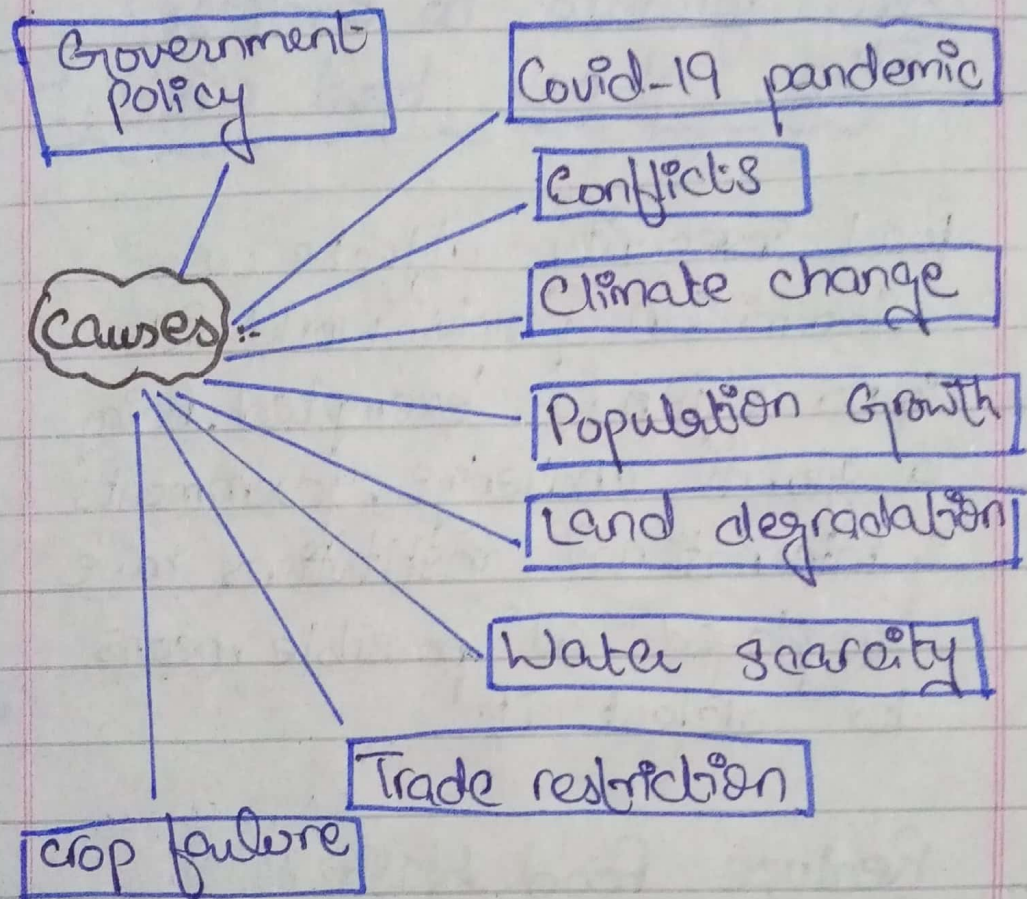 Government
policy
Covid-19 pandemic
Conflicts
Climate change
Causes :-
Population Growth
Land degradation
Water scarcity
Trade restriction
crop failure